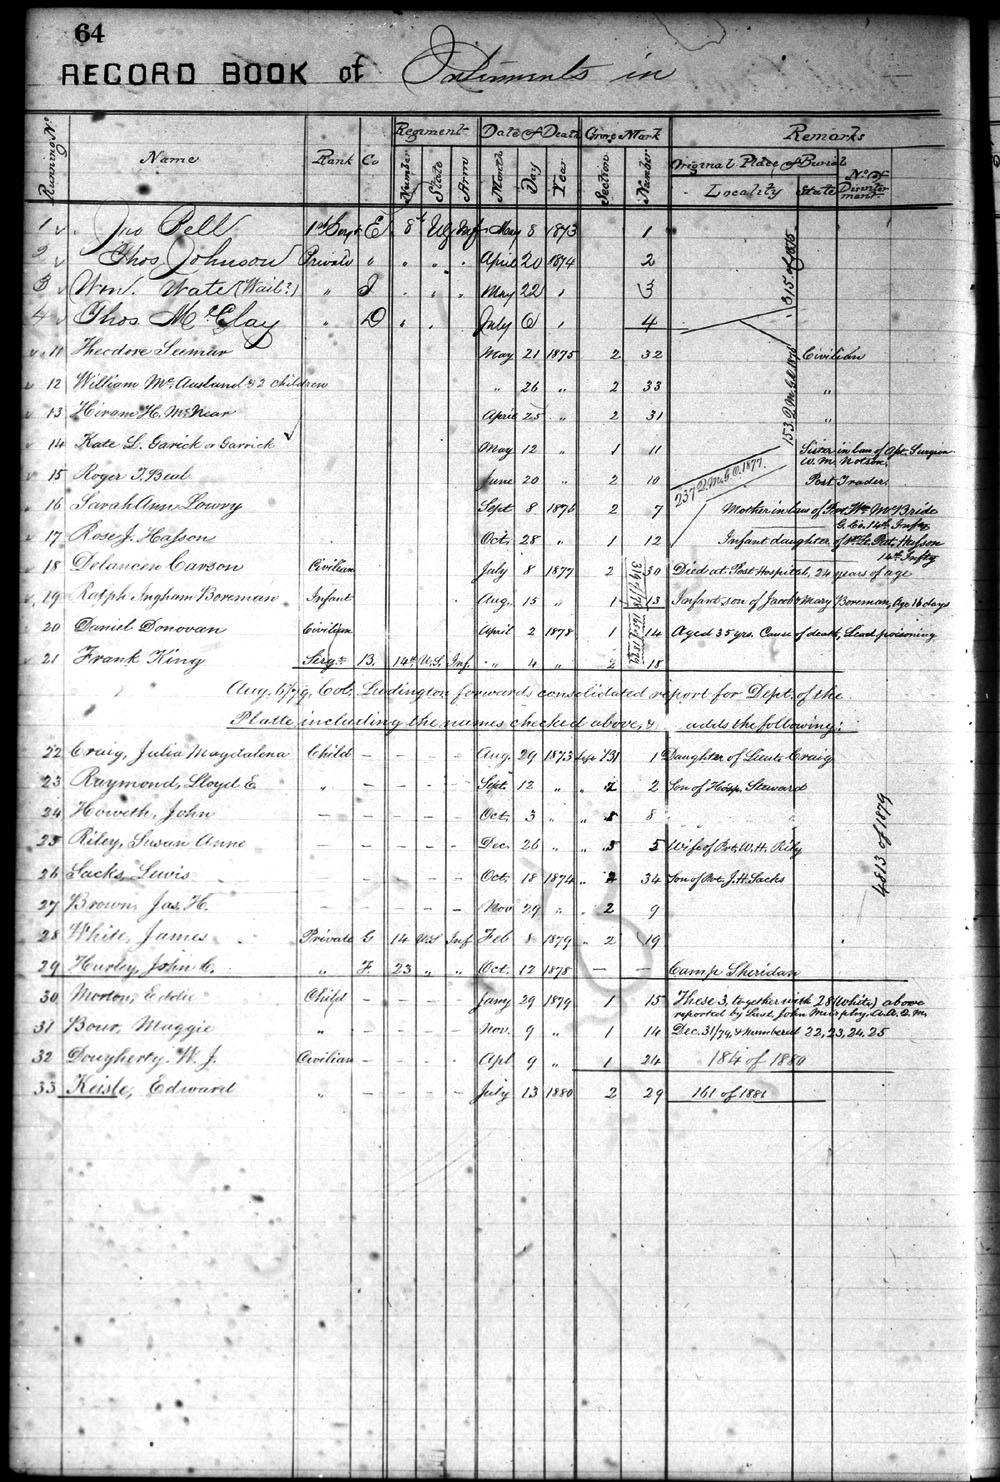 64
RECORD BOOK of Interments in
Running No. Name Rank Co Regiment Date of Death Grave Mark Remarks
Number State Arm Month Day Year Section Number Original Place of Burial No. of Disinterment
Locality State
1 Jno Pell 1st Sergt E 8th US Inf May 8 1873 1
2 Thos. Johnson Private " " " " April 20 1874 2
3 Wm. Wate (Wail?) " I " " " May 22 " 3
4 Thos. McClay " D " " July 6 " 4
315 of 1875
11 Theodore Seemar May 21 1875 2 32 Civilian
12 William McAusland & 2 children " 26 " 2 33 "
13 Hiram H. McNear April 25 " 2 31 "
153 Q.M.G.O. 1876
14 Kate L. Garick or Garrick May 12 " 1 11 Sister in law of Apt. Surgeon W. M. Notson.
15 Roger T. Beal June 20 " 2 10 Post Trader.
237 Q.M.G.O. 1877.
16 Sarah Ann Lowry Sept 8 1876 2 7 Mother in law of Pvt. Wm McBride G. Co. 14th Infty
17 Rose J. Hasson Oct. 28 " 1 12 Infant daughter of 1st Lt. Pat. Hasson 14th Infty
18 Delancen Carson Civilian July 8 1877 2 30 Died at Post Hospital, 24 years of age
19 Ralph Ingham Boreman Infant Aug. 15 " 1 13 Infant son of Jacob & Mary Boreman, Age 16 days
20 Daniel Donovan Civilian April 2 1878 1 14 Aged 35 yrs. Cause of death, Lead poisoning
21 Frank King Sergt. B. 14th U.S. Inf. " 4 " 2 18
Aug. 6/79, Col. Ludington forwards consolidated report for Dept. of the
Platte including the names checked above, & adds the following:
22 Craig, Julia Magdalena Child – – – – Aug. 29 1873 1 1 Daughter of Lieut. Craig
23 Raymond, Lloyd E " – – – – Sept. 12 " " 2 Son of Hosp. Steward
24 Howeth, John – – – – – Oct. 3 " " 8
25 Riley, Susan Anne – – – – – Dec. 26 " " 5 Wife of Pvt. W. H. Rily
26 Sacks, Lewis – – – – – Oct. 18 1874 " 2 34 Son of Pvt. J. H. Sacks
27 Brown, Jas. H. – – – – – Nov 29 " " 2 9
4813 of 1879
28 White, James Private G 14 U.S Inf Feb 8 1879 " 2 19
29 Hurley, John C. " F. 23 " " Oct. 12 1878 – – Camp Sheridan
30 Morton, Eddie Child – – – – Jany 29 1879 1 15 These 3, together with 28 (White) above
reported by Lieut. John Murphy, A.A.Q.M.
31 Bour, Maggie " – – – – Nov. 9 " 1 14 Dec. 31/79, & numbered 22, 23, 24, 25
32 Dougherty. W. J. Civilian – – – – Apl 9 " 1 24 184 of 1880
33 Keisle, Edward " – – – – July 13 1880 2 29 161 of 1881